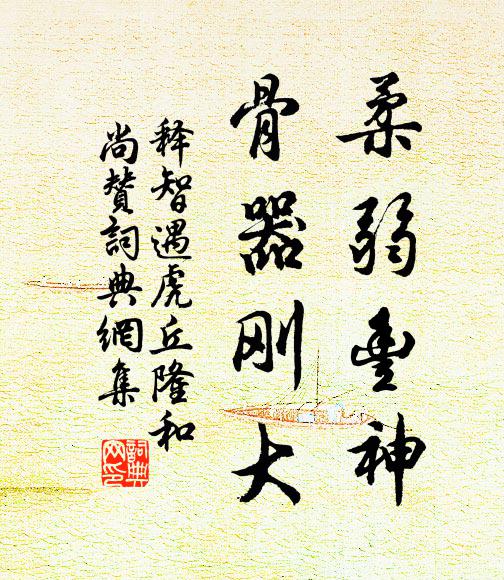 柔弱豊神
骨器刚大
释智遇虎丘隆和
尚赞詞典網集
詞典
网印